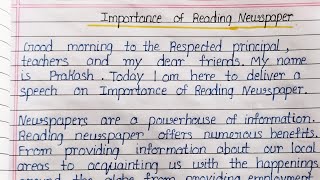 Importance of Reading Newspaper
Good morning to the Respected principal,
teachers and my dear friends. My name
is Prakash. Today I am here to deliver a
speech on Importance of Reading Newspaper.
Newspapers are a powerhouse of information.
Reading newspaper offers numerous benefits.
From providing information about our local
areas to acquainting us with the happenings
around the globe from providing employment